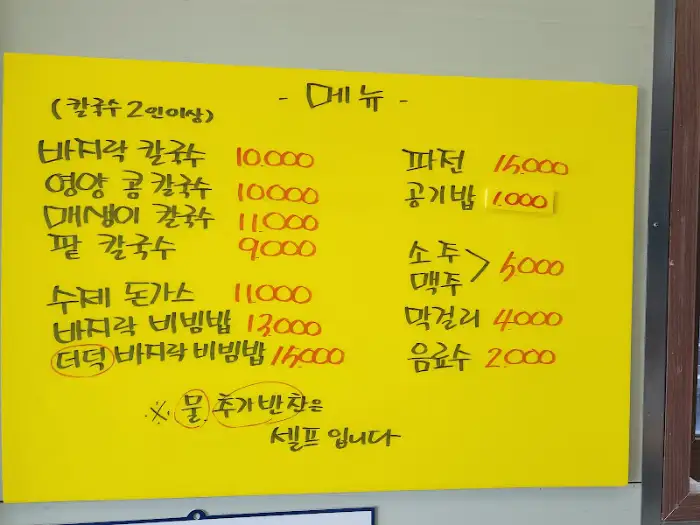 - 메뉴 -
(칼국수 2인이상)
바지락 칼국수 10.000
영양 콩칼국수 10.000
매생이 칼국수 11,000
팥 칼국수 9,000
수제 돈가스 11.000
바지락 비빔밥 13,000
더덕 바지락 비빔밥 15,000
파전 15,000
공기밥 1.000
소주
맥주 > 5,000
막걸리 4000
음료수 2.000
※ 물 추가반찬은
셀프입니다